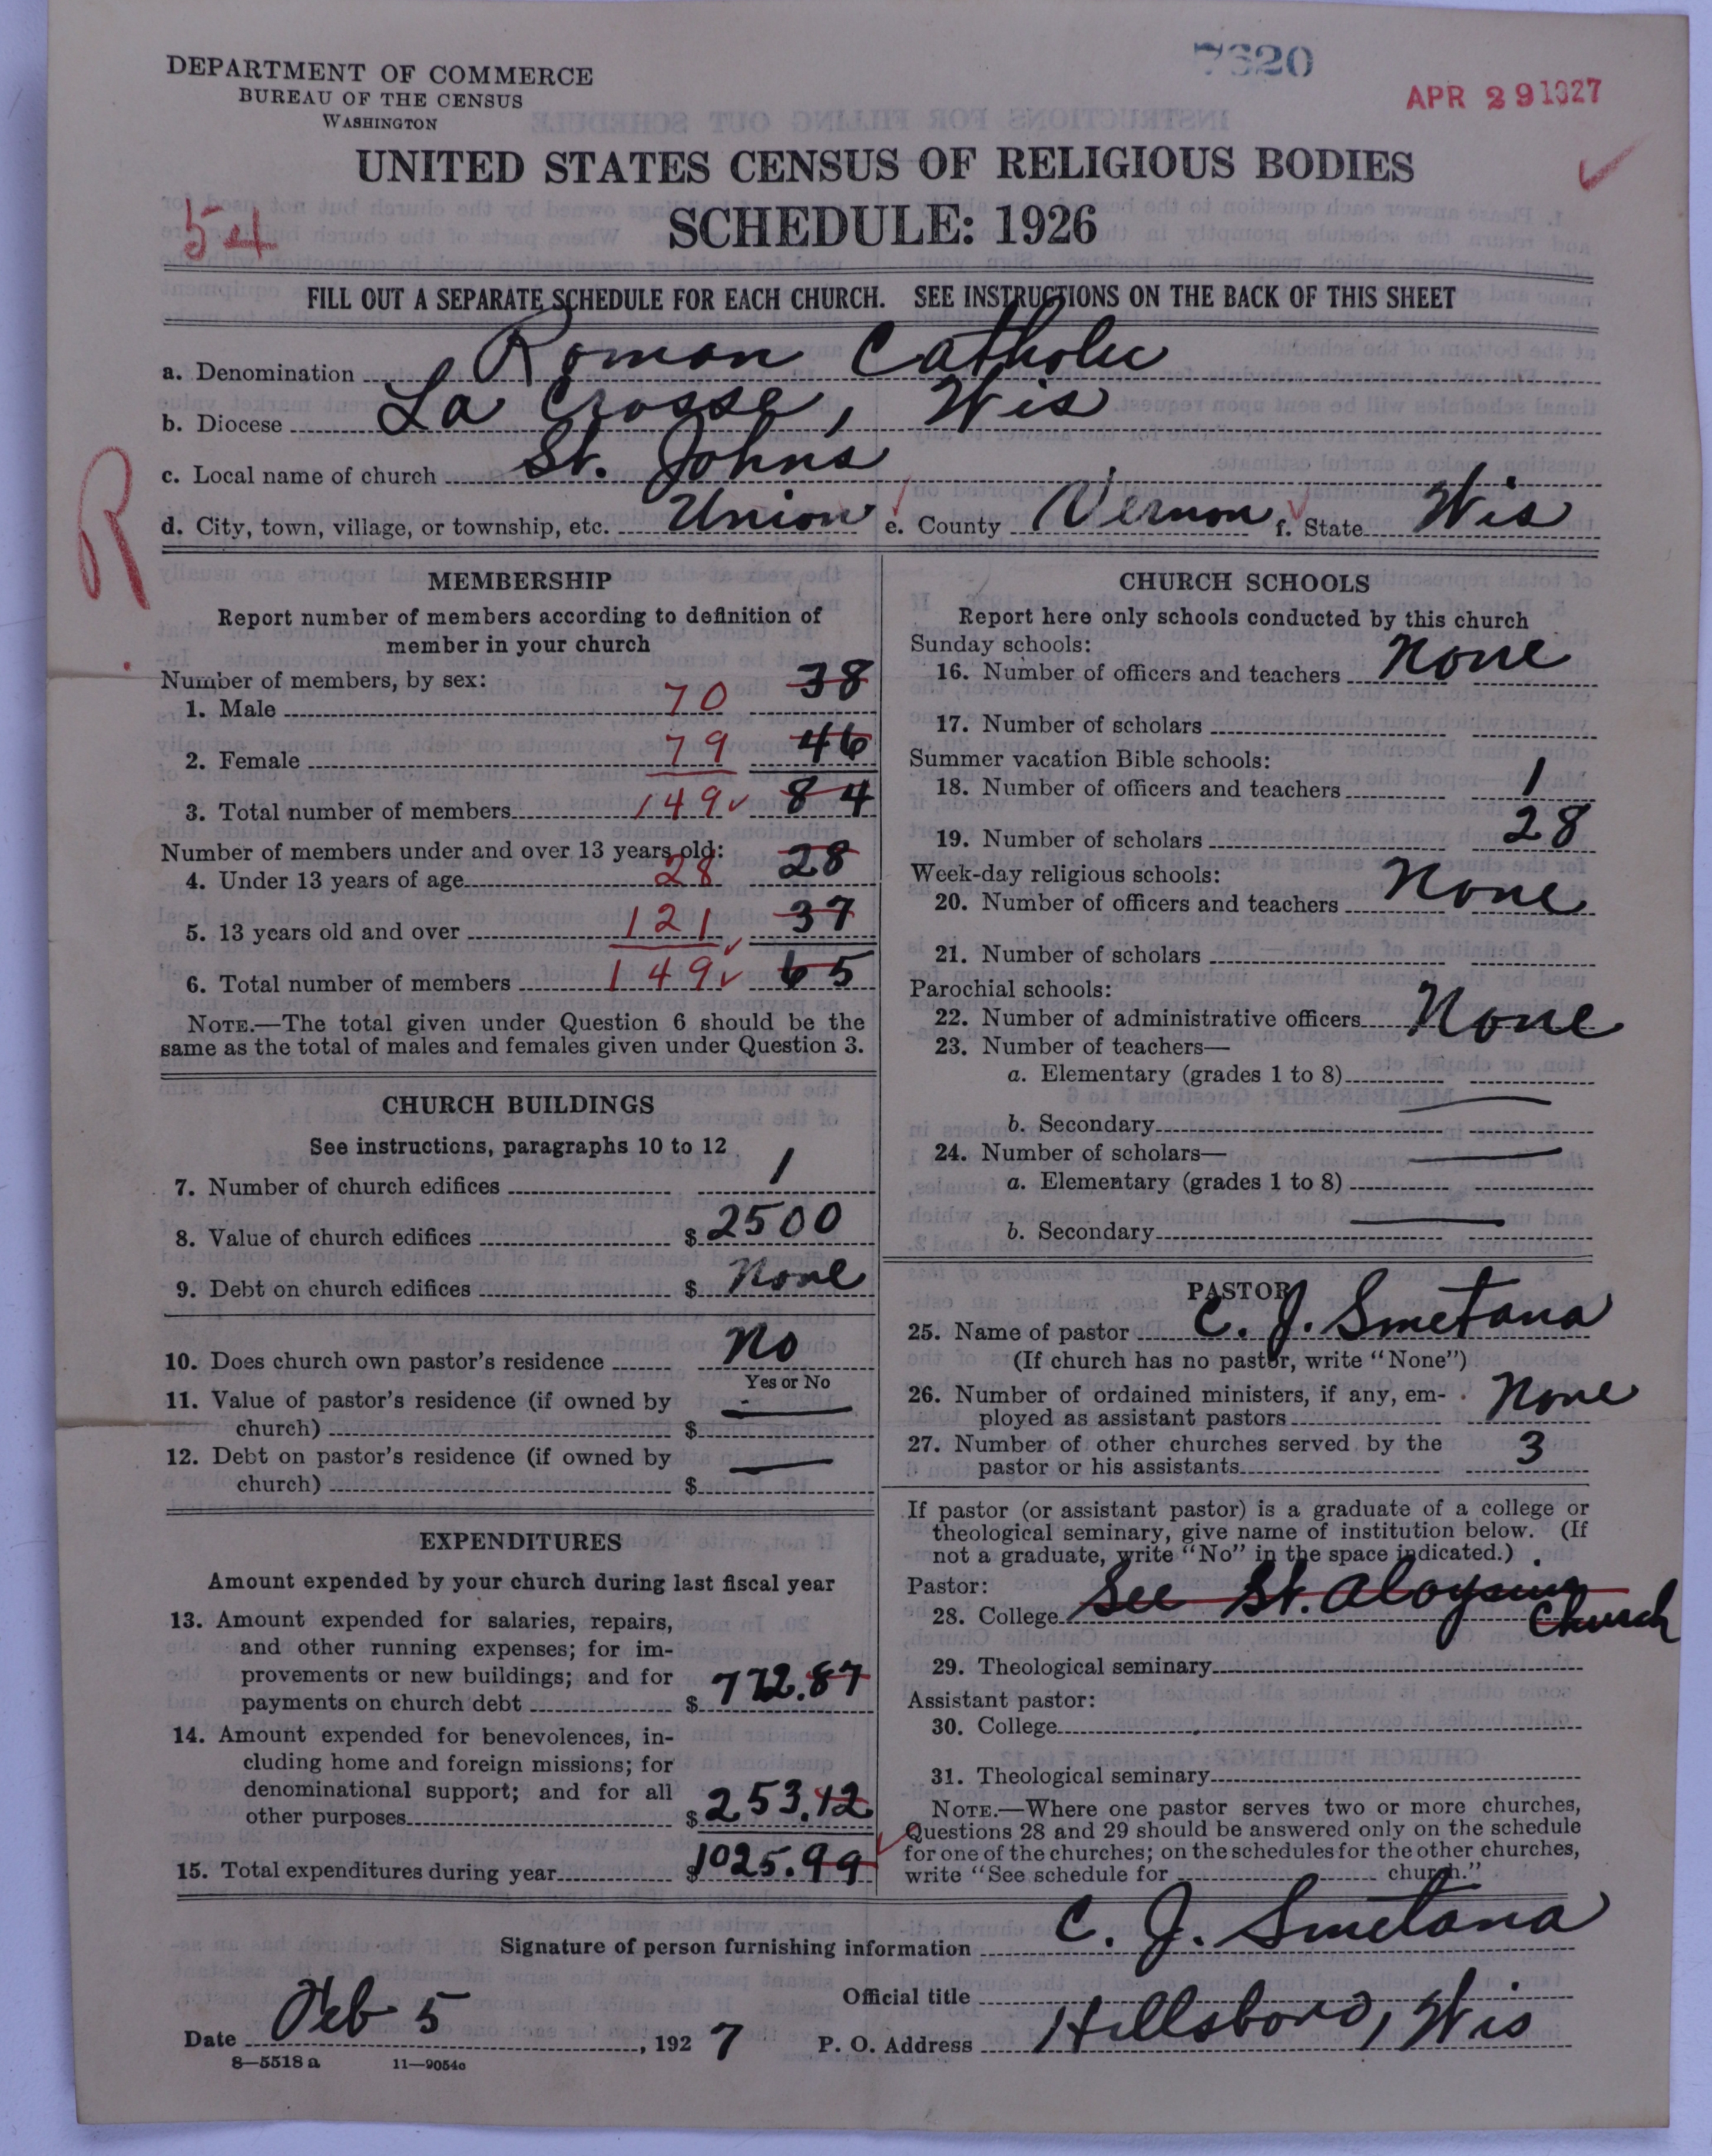 7620
APR 29 1927
DEPARTMENT OF COMMERCE
BUREAU OF THE CENSUS
WASHINGTON
UNITED STATES CENSUS OF RELIGIOUS BODIES
54
SCHEDULE: 1926
FILL OUT A SEPARATE SCHEDULE FOR EACH CHURCH. SEE INSTRUCTIONS ON THE BACK OF THIS SHEET
a. Denomination Roman Catholic
b. Diocese La Crosse, Wis
c. Local name of church St. Johns
d. City, town, village, or township, etc. Union e. County Vernon f. State Wis
R
MEMBERSHIP
Report number of members according to definition of
member in your church
Number of members, by sex:
1. Male 70 38
2. Female 79 46
3. Total number of members 149 84
Number of members under and over 13 years old:
4. Under 13 years of age 28 28
5. 13 years old and over 121 37
6. Total number of members 149 65
NOTE.—The total given under Question 6 should be the
same as the total of males and females given under Question 3.
CHURCH BUILDINGS
See instructions, paragraphs 10 to 12
7. Number of church edifices 1
8. Value of church edifices $ 2500
9. Debt on church edifices $ None
10. Does church own pastor's residence No
Yes or No
11. Value of pastor's residence (if owned by
church) $
12. Debt on pastor's residence (if owned by
church) $
EXPENDITURES
Amount expended by your church during last fiscal year
13. Amount expended for salaries, repairs,
and other running expenses; for im-
provements or new buildings; and for
payments on church debt $ 772.87
14. Amount expended for benevolences, in-
cluding home and foreign missions; for
denominational support; and for all
other purposes $ 253.12
15. Total expenditures during year $ 1025.99
CHURCH SCHOOLS
Report here only schools conducted by this church
Sunday schools:
16. Number of officers and teachers None
17. Number of scholars
Summer vacation Bible schools:
18. Number of officers and teachers 1
19. Number of scholars 28
Week-day religious schools:
20. Number of officers and teachers None
21. Number of scholars
Parochial schools:
22. Number of administrative officers None
23. Number of teachers—
a. Elementary (grades 1 to 8)
b. Secondary
24. Number of scholars—
a. Elementary (grades 1 to 8)
b. Secondary
PASTOR
25. Name of pastor C. J. Smetana
(If church has no pastor, write "None")
26. Number of ordained ministers, if any, em-
ployed as assistant pastors None
27. Number of other churches served by the
pastor or his assistants 3
If pastor (or assistant pastor) is a graduate of a college or
theological seminary, give name of institution below. (If
not a graduate, write "No" in the space indicated.)
Pastor:
28. College See St. Aloysius
Church
29. Theological seminary
Assistant pastor:
30. College
31. Theological seminary
NOTE.—Where one pastor serves two or more churches,
Questions 28 and 29 should be answered only on the schedule
for one of the churches; on the schedules for the other churches,
write "See schedule for church."
Signature of person furnishing information C. J. Smetana
Official title
Date Feb 5, 1927 P. O. Address Hillsboro, Wis
8—5518 a 11—9054c